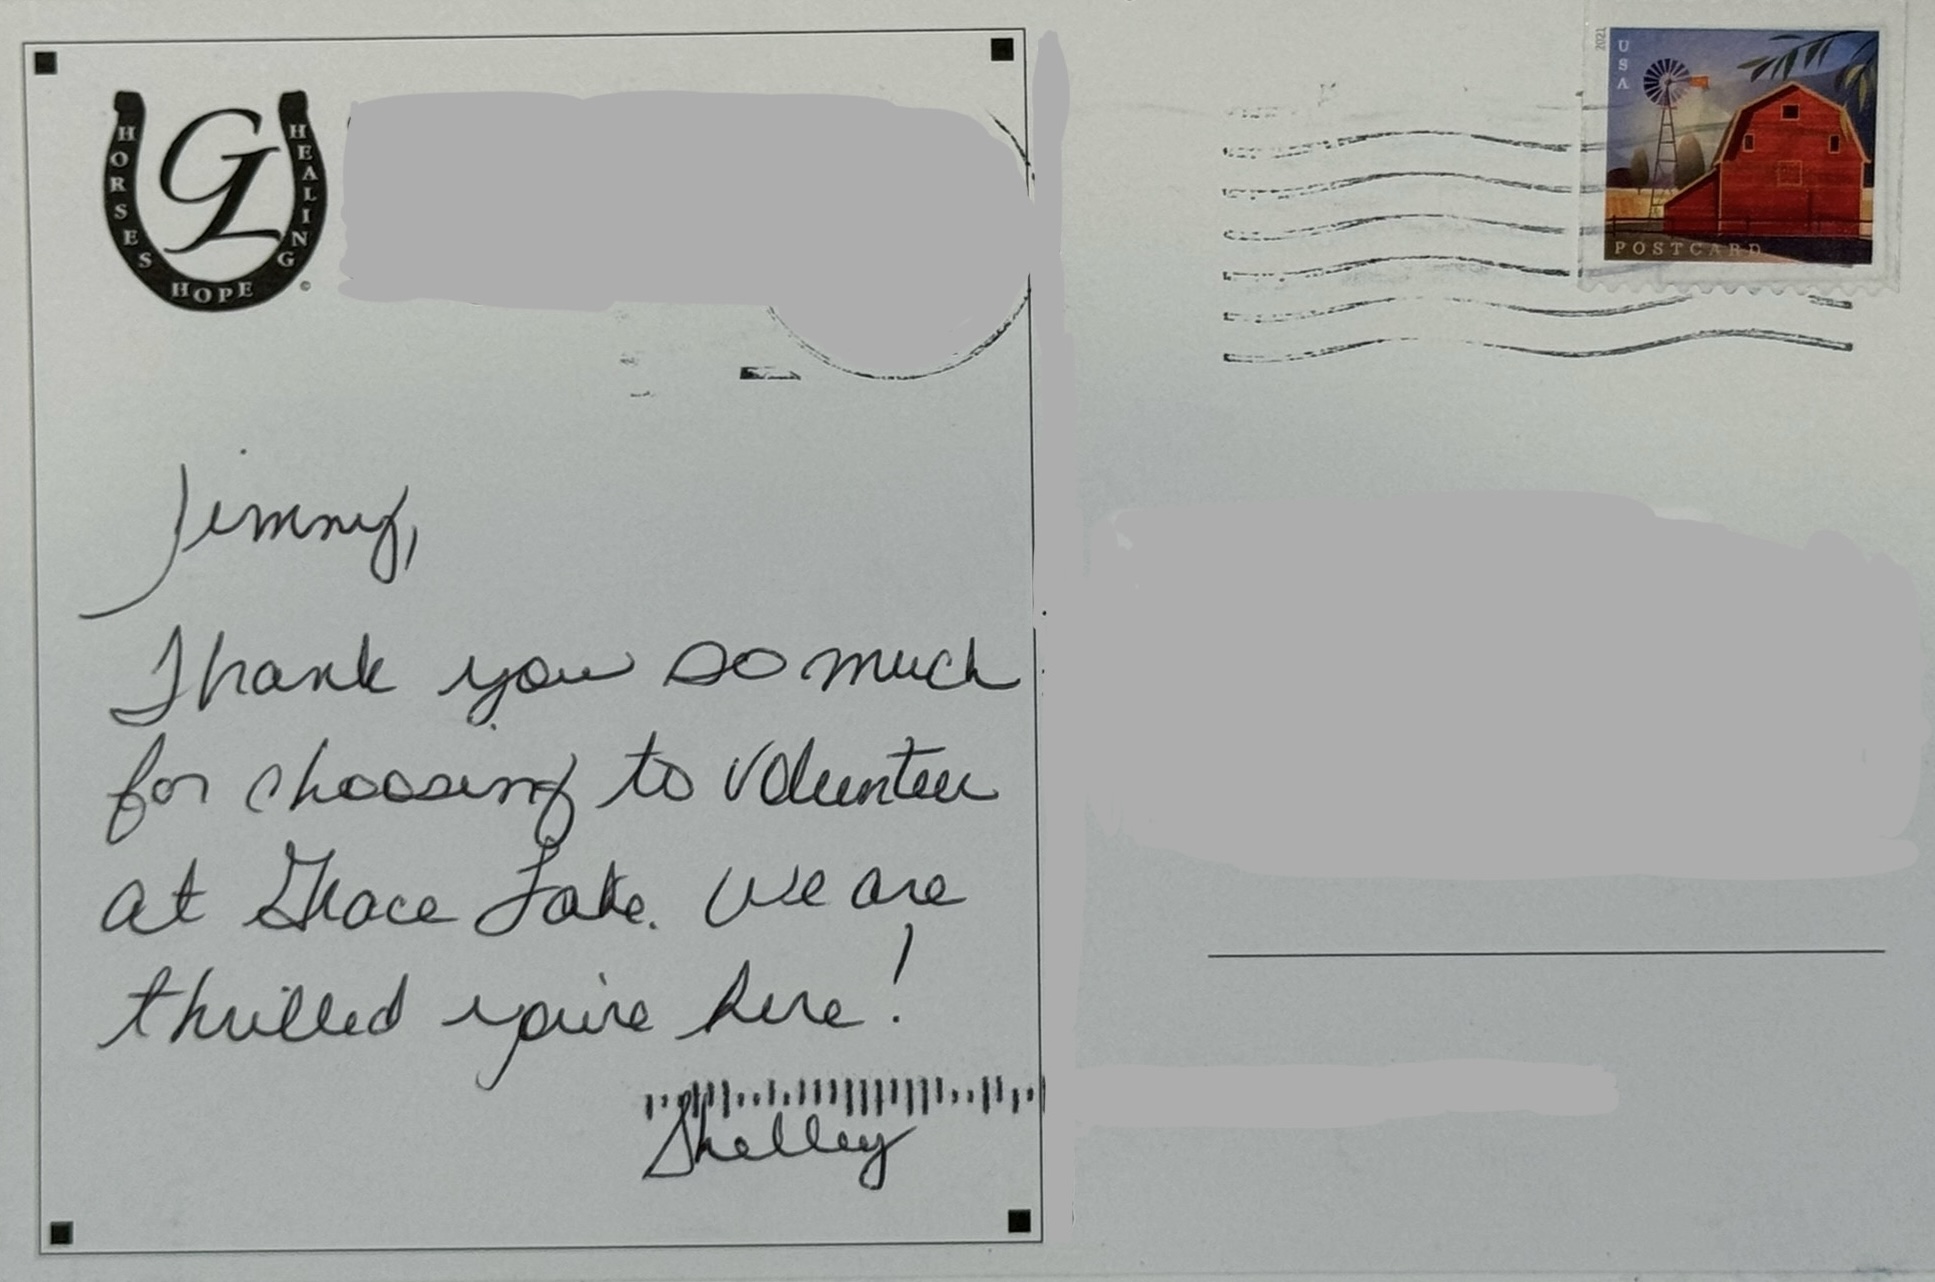 HORSES HOPE HEALING
GL
©
2021
USA
POSTCARD
Jimmy,
Thank you so much
for choosing to volunteer
at Grace Lake. We are
thrilled you're here!
Shelley